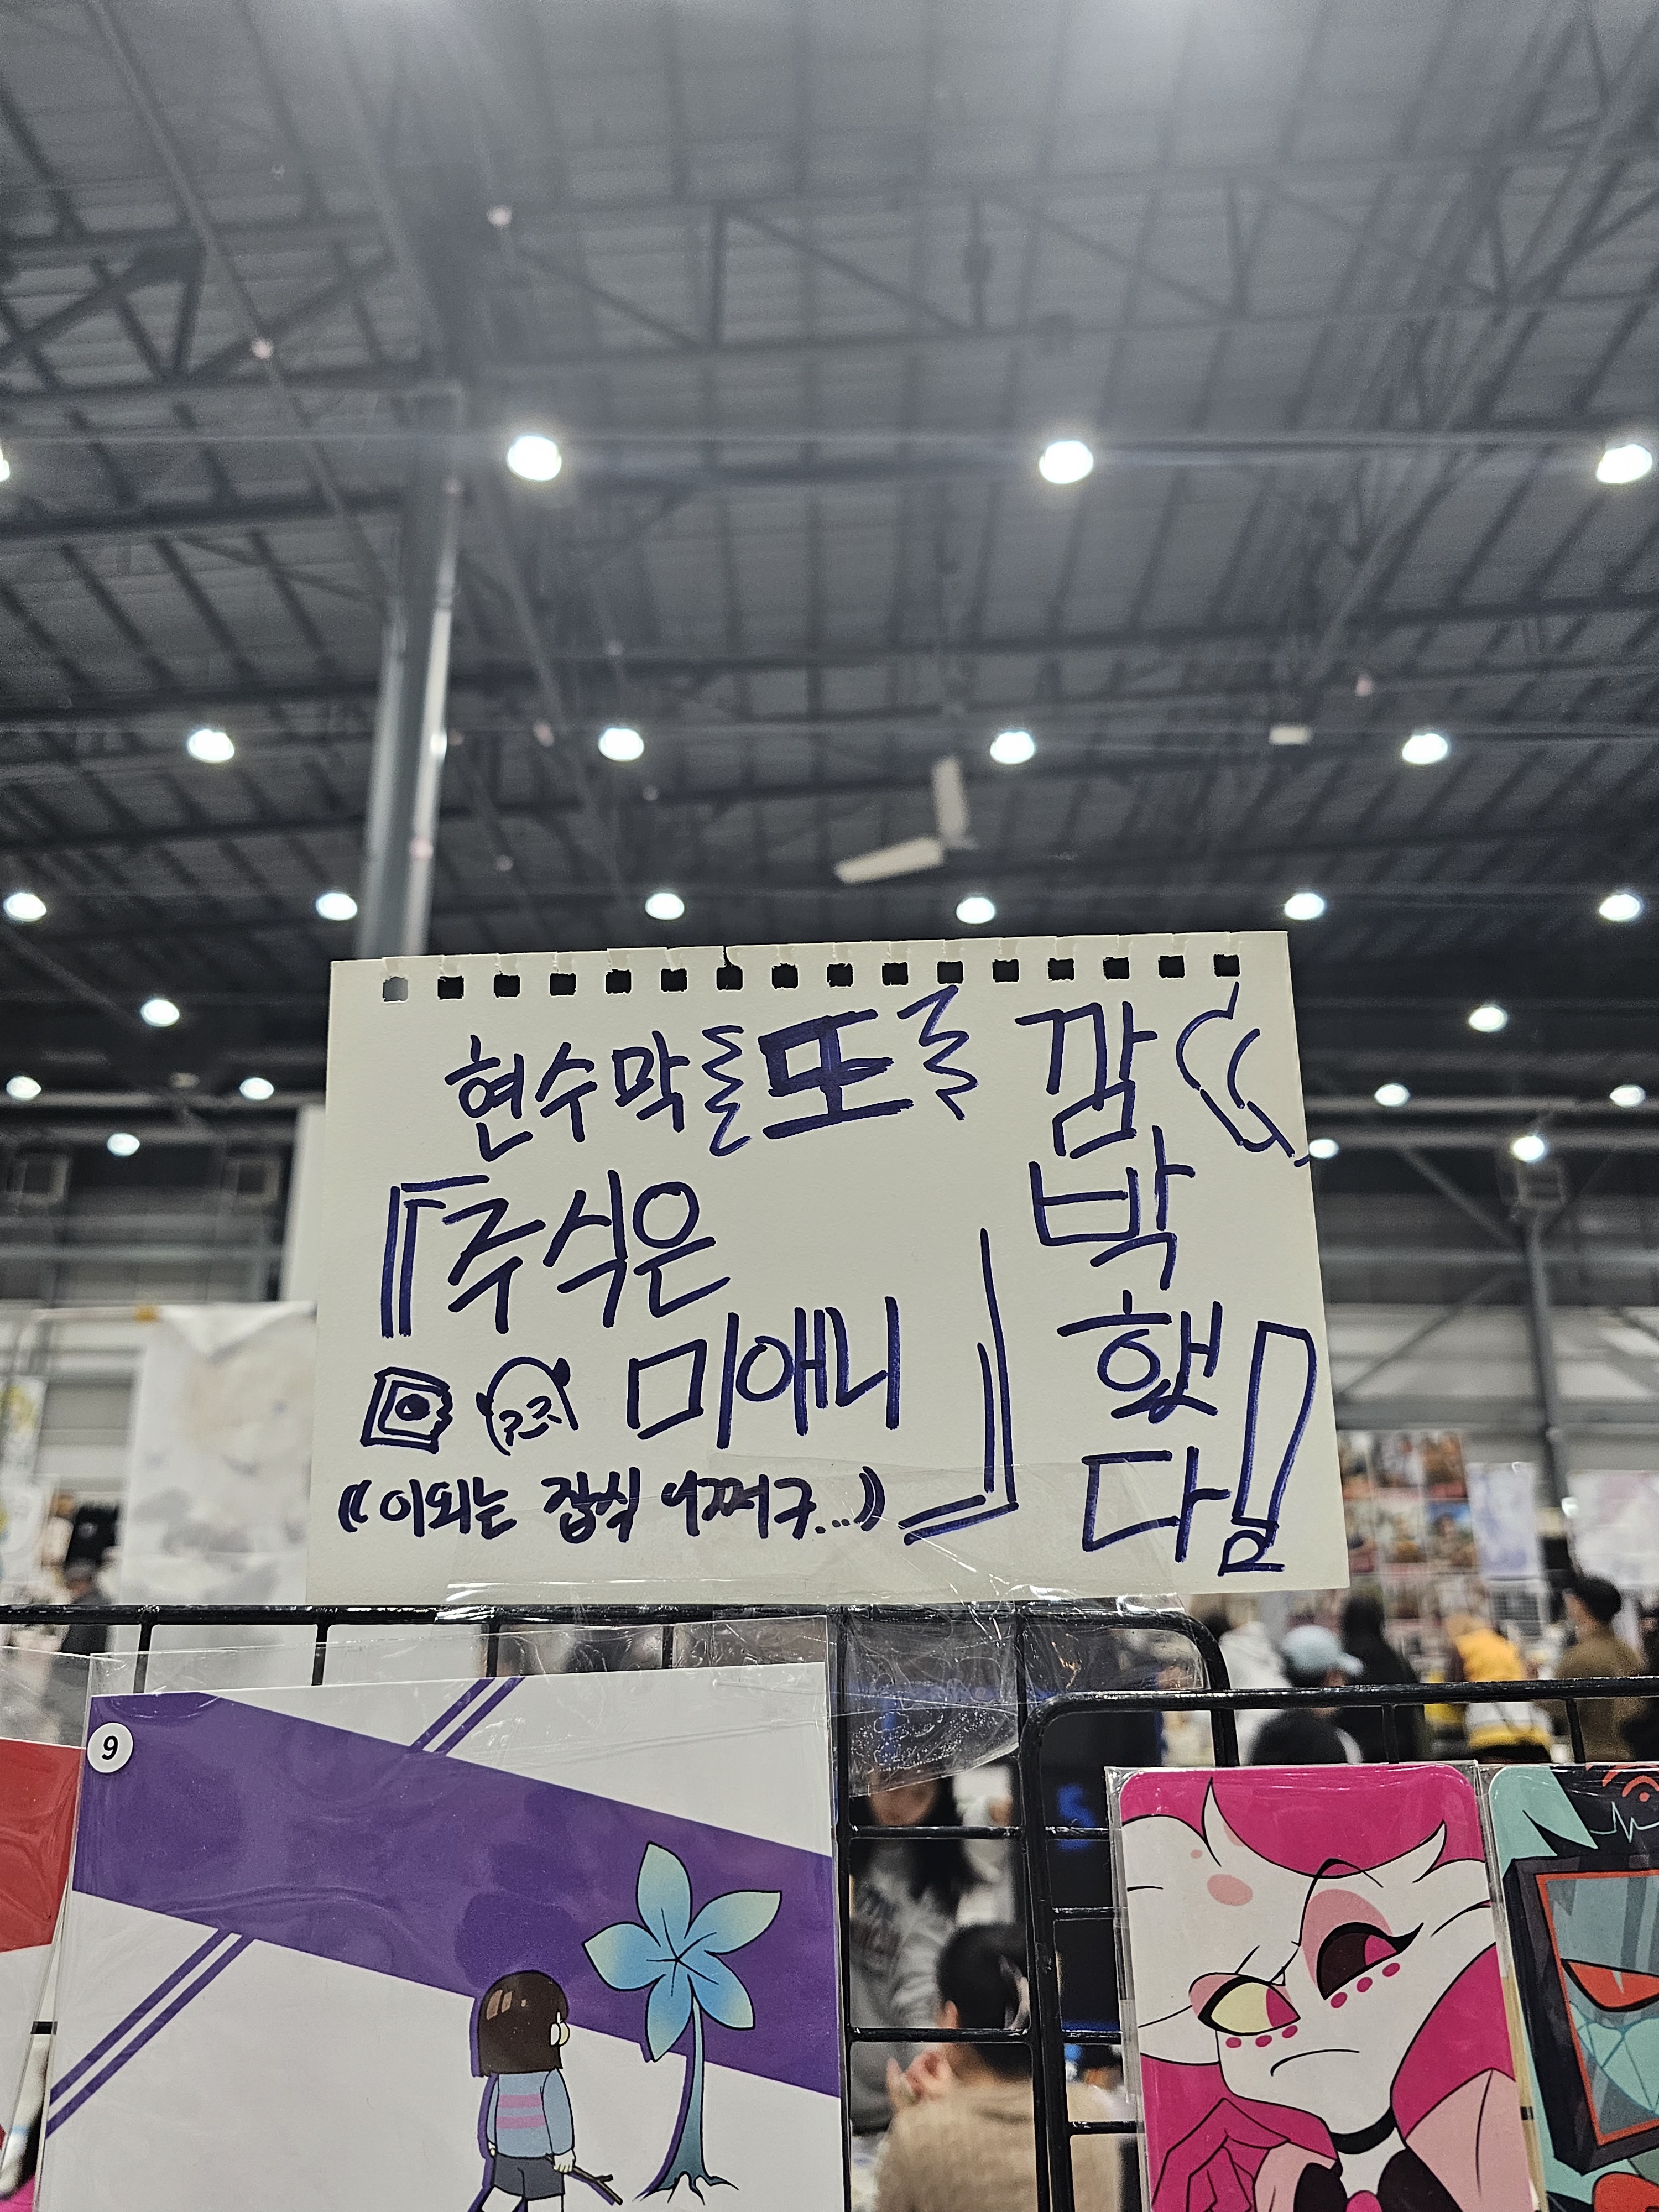 현수막 또
깜
박
했
다!
『주식은
미애니
((이외는 잡식 어쩌구...))』
9